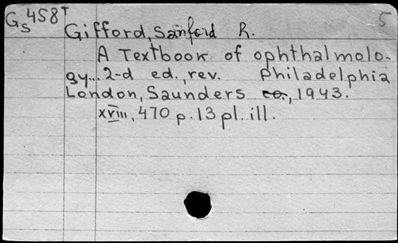 G 458 T
S
5
Gifford, Sanford R.
A Textbook of ophthalmolo-
gy... 2-d ed., rev. Philadelphia
London, Saunders co., 1943.
xviii, 470 p. 13 pl. ill.